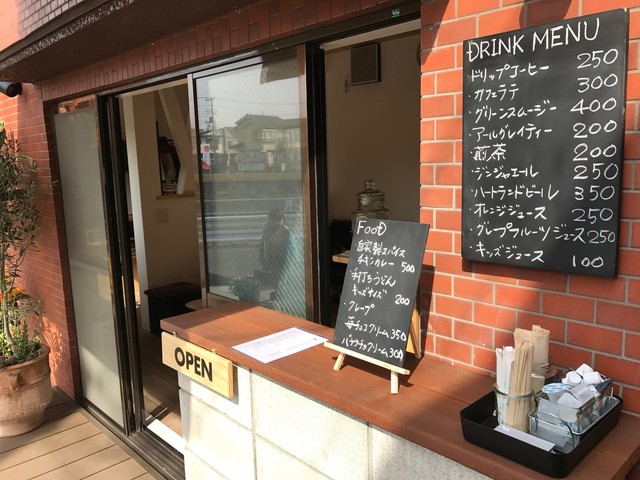 DRINK MENU
・ドリップコーヒー 250
・カフェラテ 300
・グリーンスムージー 400
・アールグレイティー 200
・煎茶 200
・ジンジャエール 250
・ハートランドビール 350
・オレンジジュース 250
・グレープフルーツジュース 250
・キッズジュース 100
FooD
・自家製スパイス
チキンカレー 500
・手打ちうどん
キッズサイズ 200
・クレープ
苺チョコクリーム 350
バナナチョコクリーム 300
OPEN